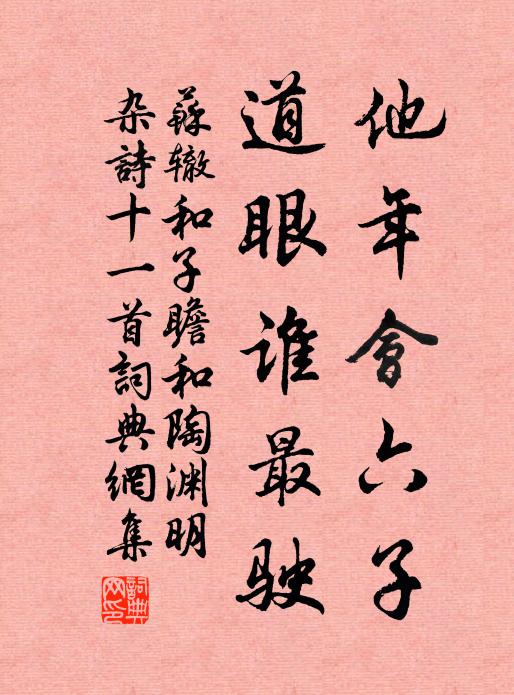 他年會六子
道眼谁最駛
蘇辙和子瞻和陶渊明
杂詩十一首詞典網集
詞典網印